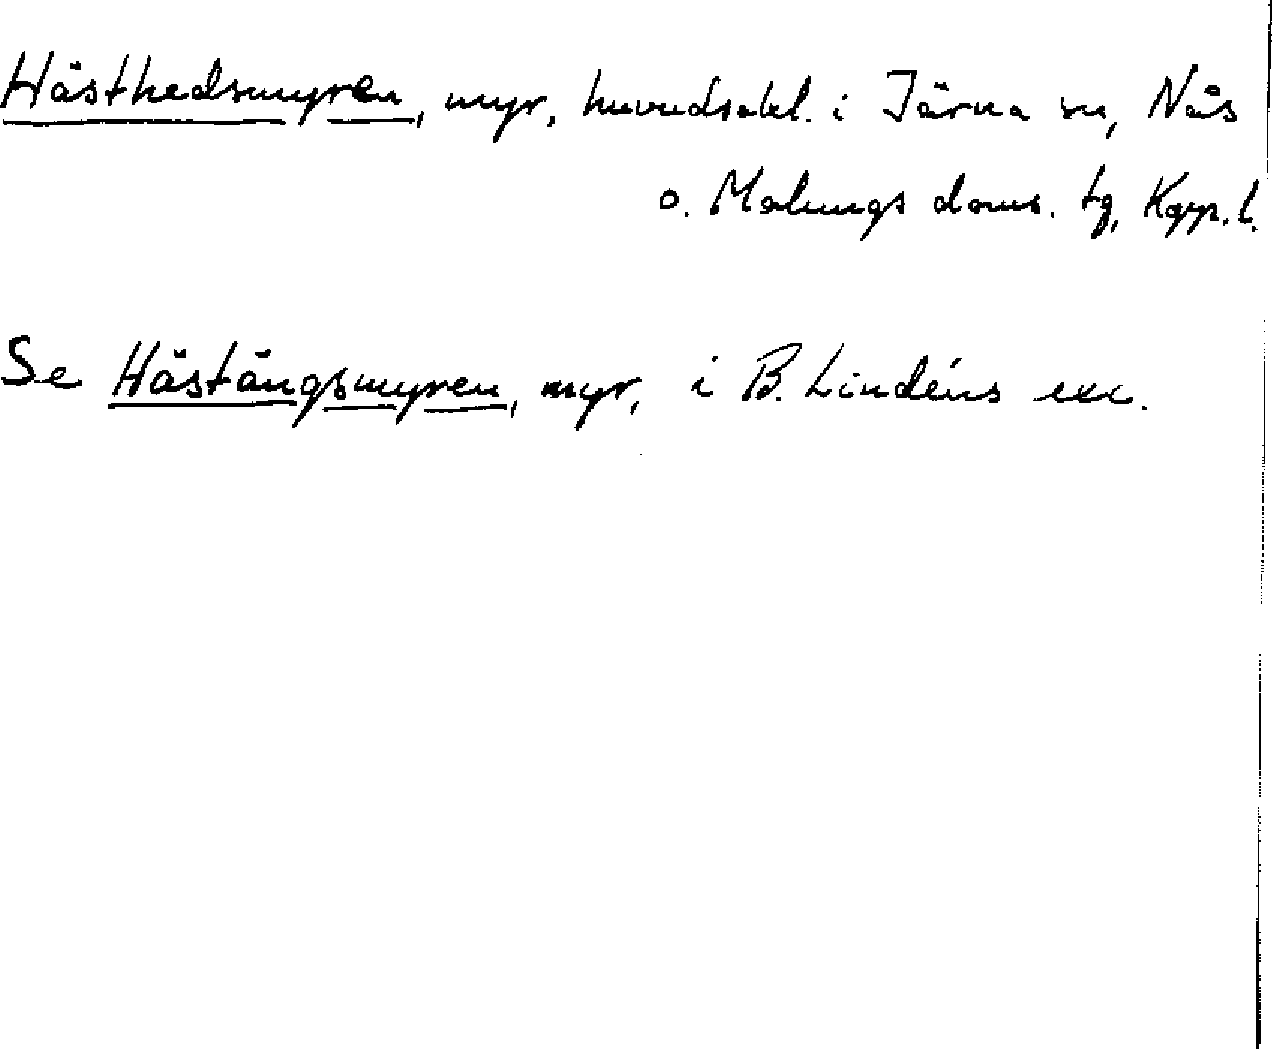 Hästhedsmyren, myr, huvudsakl. i Järna sn, Nås
o. Malungs doms. tg, Kopp. l.
Se Hästängsmyren, myr, i B. Lindéns exc.